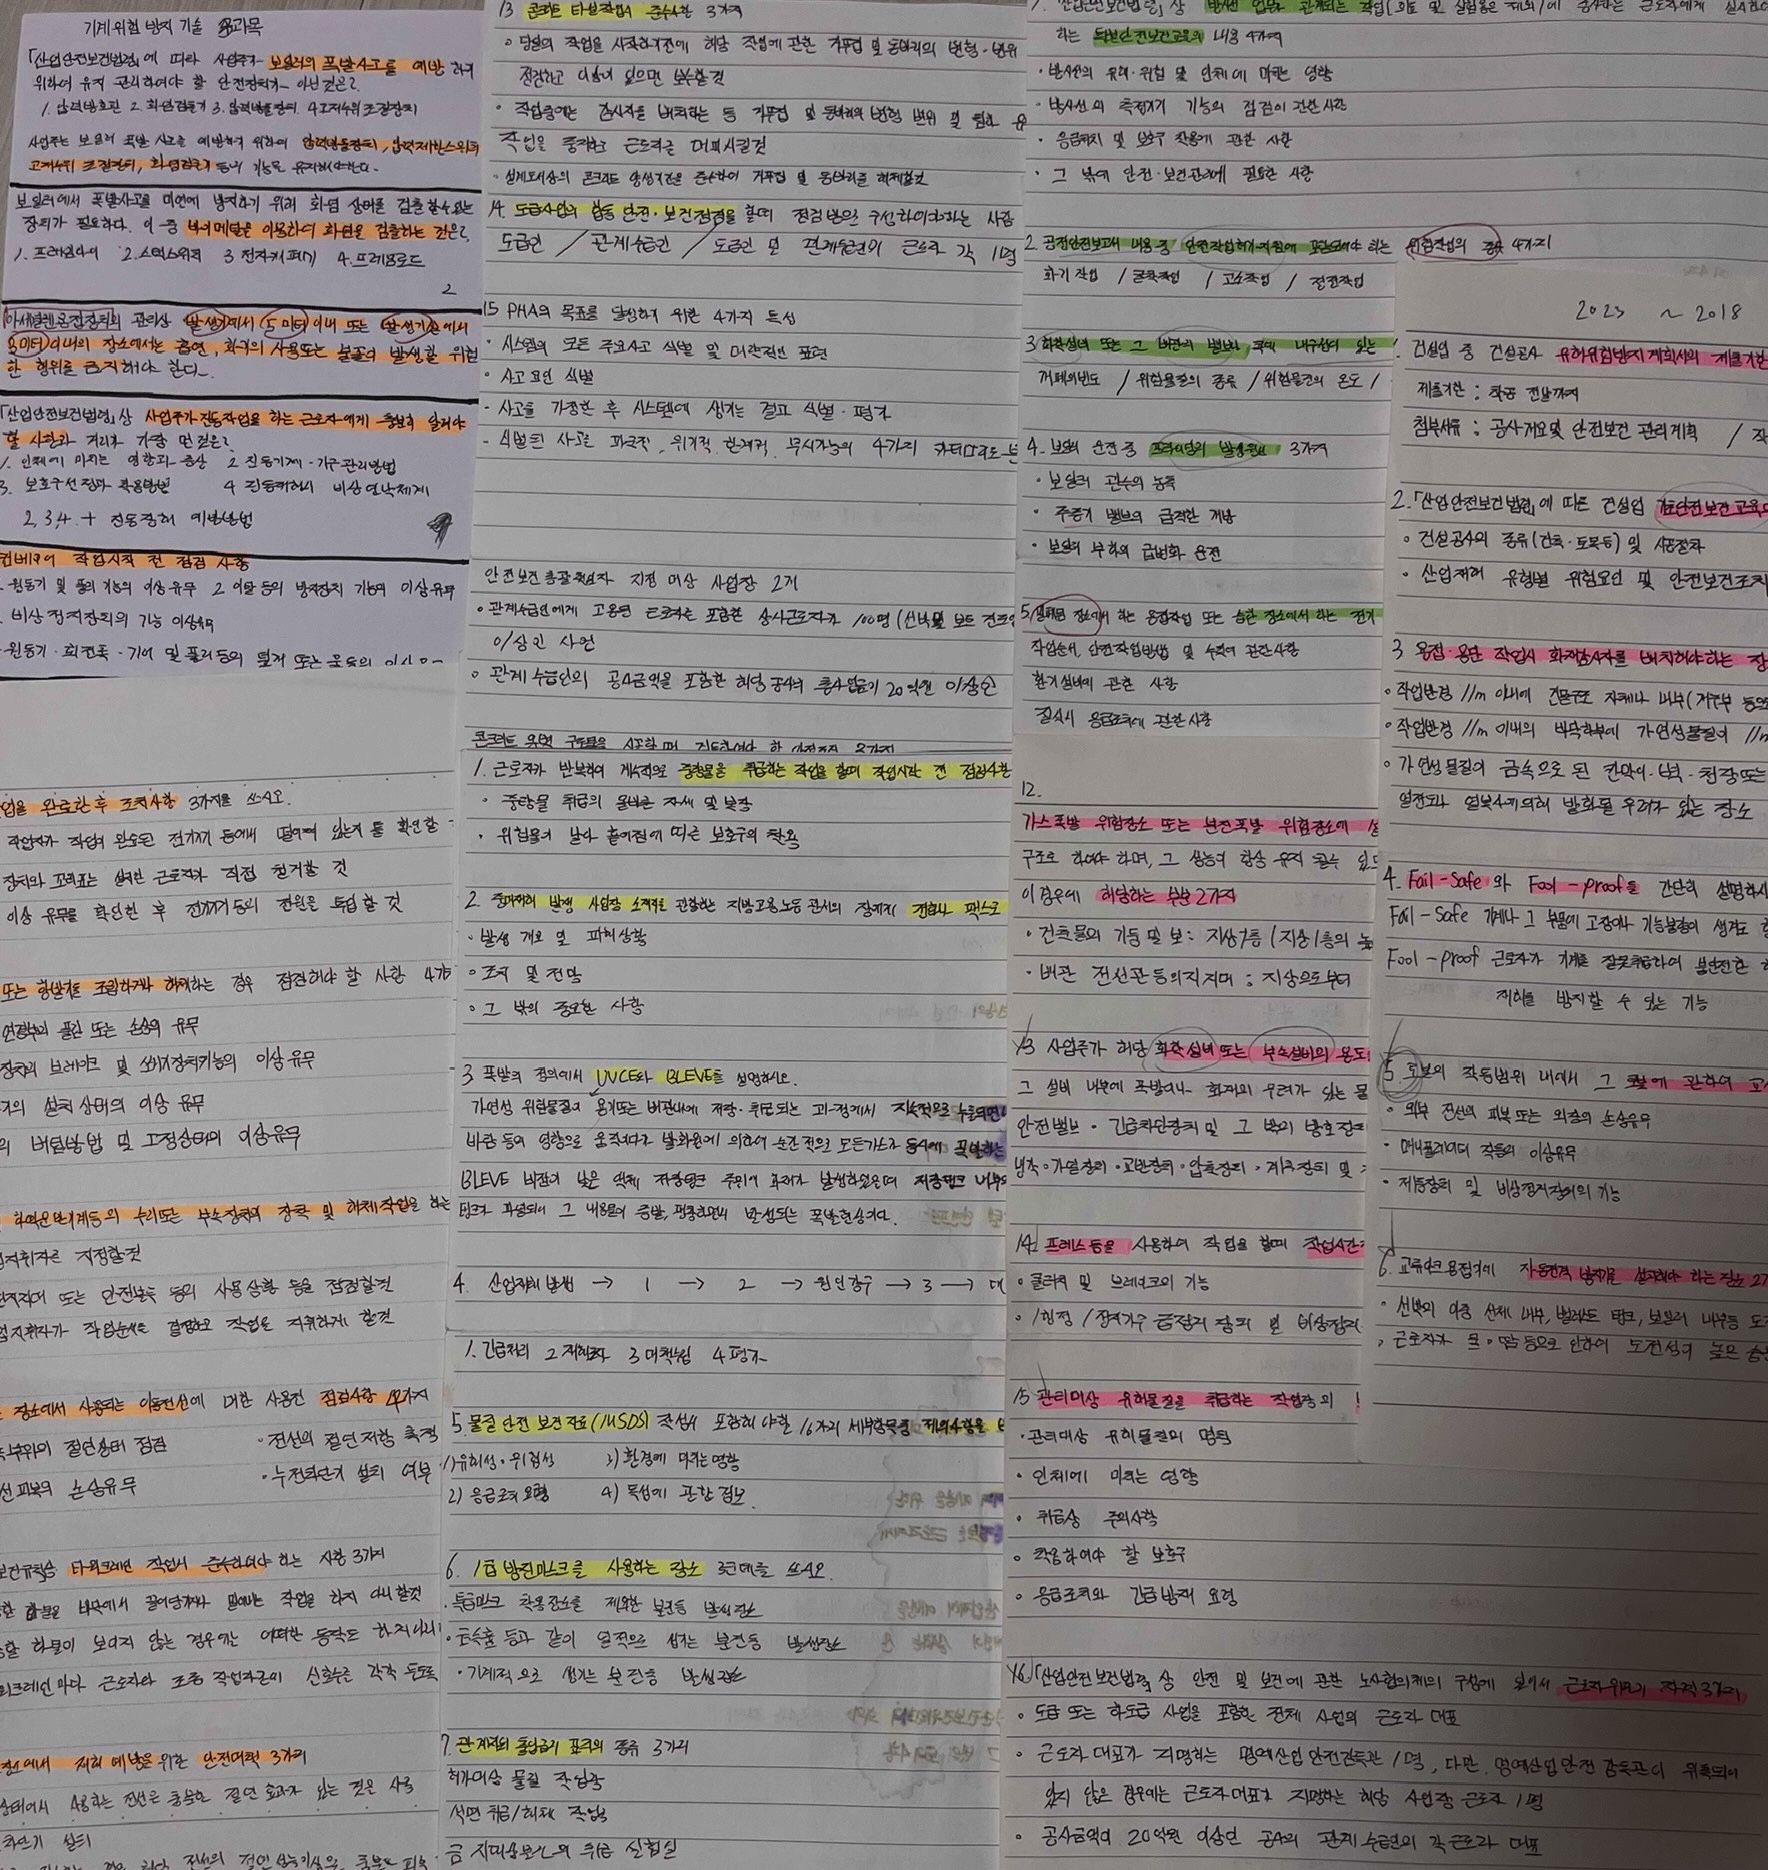 기계위험 방지 기술 3과목
「산업안전보건법령」에 따라 사업주가 보일러의 폭발사고를 예방 하기
위하여 유지 관리하여야 할 안전장치가 아닌것은?
1. 압력방호판 2. 화염검출기 3. 압력방출장치 4. 고저수위 조절장치
사업주는 보일러 폭발 사고를 예방하기 위하여 압력방출장치, 압력제한스위치
고저수위 조절장치, 화염검출기 등의 기능을 유지해야한다.
보일러에서 폭발사고를 미연에 방지하기 위해 화염 상태를 검출할수있는
장치가 필요하다. 이 중 바이메탈을 이용하여 화염을 검출하는 것은?
1. 프레임아이 2. 스택스위치 3 전자개폐기 4. 프레임로드
2
아세틸렌용접장치의 관리상 발생기에서 5미터 이내 또는 발생기실에서
3미터이내의 장소에서는 흡연, 화기의 사용또는 불꽃이 발생할 위험
한 행위를 금지해야 한다.
「산업안전보건법령」상 사업주가 진동작업을 하는 근로자에게 충분히 알려야
할 사항과 거리가 가장 먼것은?
1. 인체에 미치는 영향과 증상 2 진동기계·기구관리방법
3. 보호구선정과 착용방법 4 진동재해시 비상연락체계
2,3,4 + 진동장해 예방방법
컨베이어 작업시작 전 점검 사항
원동기 및 풀리 기능의 이상유무 2 이탈 등의 방지장치 기능의 이상유무
비상정지장치의 기능 이상유무
원동기·회전축·기어 및 풀리등의 덮개 또는 울등의 이상
업을 완료한 후 조치사항 3가지를 쓰시오.
작업자가 작업이 완료된 전기기기 등에서 떨어져 있는지 를 확인할
장치와 꼬리표는 설치한 근로자가 직접 철거할 것
이상 유무를 확인한 후 전기기기등의 전원을 투입할 것
또는 항발기를 조립하거나 해체하는 경우 점검해야 할 사항 4가지
연결부의 풀림 또는 손상의 유무
장치의 브레이크 및 쐐기장치기능의 이상유무
기의 설치상태의 이상 유무
의 버팀방법 및 고정상태의 이상유무
하역운반기계등의 수리또는 부속장치의 장착 및 해체작업을 하는
지휘자를 지정할것
안전지대 또는 안전블록 등의 사용상황 등을 점검할것
업지휘자가 작업순서를 결정하고 작업을 지휘하게 할것
장소에서 사용되는 이동전선에 대한 사용전 점검사항 4가지
부위의 절연상태 점검 · 전선의 절연저항 측정
선 피복의 손상유무 · 누전차단기 설치 여부
보건규칙상 타워크레인 작업시 준수하여야 하는 사항 3가지
할 화물을 바닥에서 끌어당기거나 밀어내는 작업을 하지 아니할것
할 화물이 보이지 않는 경우에는 어떠한 동작도 하지아니
워크레인마다 근로자와 조종 작업자간에 신호수를 각각 두도록
에서 재해 예방을 위한 안전대책 3가지
상태에서 사용하는 전선은 충분한 절연 효과가 있는 것을 사용
차단기 설치
13 콘크리트 타설작업시 준수사항 3가지
◦ 당일의 작업을 시작하기전에 해당 작업에 관한 거푸집 및 동바리의 변형·변위
점검하고 이상이 있으면 보수할것
• 작업중에는 감시자를 배치하는 등 거푸집 및 동바리의 변형 변위 및 침하 유
작업을 중지하고 근로자를 대피시킬것
· 설계도서상의 콘크리트 양생기간을 준수하여 거푸집 및 동바리를 해체할것
14. 도급사업의 합동 안전·보건점검을 할때 점검반을 구성하여야하는 사람
도급인 / 관계수급인 / 도급인 및 관계수급인의 근로자 각 1명
15 PHA의 목표를 달성하기 위한 4가지 특성
· 시스템의 모든 주요사고 식별 및 대략적인 표현
· 사고 요인 식별
· 사고를 가정한 후 시스템에 생기는 결과 식별·평가
- 식별된 사고를 파국적, 위기적, 한계적, 무시가능의 4가지 카테고리로 분
안전보건총괄책임자 지정 대상 사업장 2개
◦ 관계수급인에게 고용된 근로자를 포함한 상시근로자가 100명 (선박및 보트 건조업
이상인 사업
◦ 관계수급인의 공사금액을 포함한 해당 공사의 총공사금액 20억원 이상인
1. 근로자가 반복하여 계속적으로 중량물을 취급하는 작업을 할때 작업시작 전 점검사항
· 중량물 취급의 올바른 자세 및 복장
· 위험물이 날아 흩어짐에 따른 보호구의 착용
2. 중대재해 발생 사업장 소재지를 관할하는 지방고용노동 관서의 장에게 전화나 팩스로
· 발생 개요 및 피해상황
◦ 조치 및 전망
◦ 그 밖의 중요한 사항
3 폭발의 정의에서 UVCE와 BLEVE를 설명하시오.
가연성 위험물질이 용기또는 배관내에 저장·취급되는 과정에서 지속적으로 누출되면서
바람 등의 영향으로 움직이다가 발화원에 의하여 순간적으로 모든가스가 동시에 폭발하는
BLEVE 비점이 낮은 액체 저장탱크 주위에 화재가 발생하였을때 저장탱크 내부의
탱크가 파열되어 그 내용물이 증발, 팽창하면서 발생되는 폭발현상이다.
4. 산업재해 발생 → 1 → 2 → 원인강구 → 3 → 대
1. 긴급처리 2 재해조사 3 대책수립 4 평가
5. 물질 안전 보건 자료(MSDS) 작성시 포함해야할 16가지 세부항목중 제외사항을 뺀
1) 유해성·위험성 3) 환경에 미치는영향
2) 응급조치 요령 4) 독성에 관한 정보.
6. 1급 방진마스크를 사용하는 장소 3군데를 쓰시오.
· 특급마스크 착용장소를 제외한 분진등 발생장소
· 금속흄 등과 같이 열적으로 생기는 분진등 발생장소
· 기계적으로 생기는 분진등 발생장소
7. 관계자외 출입금지 표지의 종류 3가지
허가대상 물질 작업장
석면 취급/해체 작업장
금지대상물질의 취급 실험실
하는 특별안전보건교육의 내용 4가지
· 방사선의 유해·위험 및 인체에 미치는 영향
· 방사선의 측정기기 기능의 점검에 관한사항
· 응급처치 및 보호구 착용에 관한 사항
· 그 밖에 안전·보건관리에 필요한 사항
2. 공정안전보고서 내용 중 안전작업허가지침에 포함되어야 하는 위험작업의 종류 4가지
화기작업 / 굴착작업 / 고소작업 / 정전작업
3 화학설비 또는 그 배관의 밸브나, 콕에 내구성이 있는
개폐의빈도 / 위험물질의 종류 / 위험물질의 온도 /
4. 보일러 운전 중 프라이밍의 발생원인 3가지
· 보일러 관수의 농축
· 주증기 밸브의 급격한 개방
· 보일러 부하의 급변화 운전
5. 밀폐된 장소에서 하는 용접작업 또는 습한 장소에서 하는 전기
작업순서, 안전작업방법 및 수칙에 관한사항
환기설비에 관한 사항
질식시 응급조치에 관한사항
12.
가스폭발 위험장소 또는 분진폭발 위험장소에 설
구조로 하여야 하며, 그 성능이 항상 유지 될수 있도
이 경우에 해당하는 부분 2가지
· 건축물의 기둥 및 보 : 지상1층 (지상1층의 높
· 배관 전선관 등의지지대 : 지상으로부터
13 사업주가 해당 화학설비 또는 부속설비의 용도
그 설비 내부에 폭발이나 화재의 우려가 있는 물
안전밸브·긴급차단장치및 그 밖의 방호장치
냉각·가열장치·교반장치·압축장치·계측장치 및
14. 프레스등을 사용하여 작업을 할때 작업시작
◦ 클러치 및 브레이크의 기능
15 관리대상 유해물질을 취급하는 작업장의
· 관리대상 유해물질의 명칭
· 인체에 미치는 영향
· 취급상 주의사항
◦ 착용하여야 할 보호구
◦ 응급조치와 긴급방재 요령
16 「산업안전보건법령」상 안전 및 보건에 관한 노사협의체의 구성에 있어서 근로자위원의 자격 3가지
◦ 도급 또는 하도급 사업을 포함한 전체 사업의 근로자 대표
◦ 근로자 대표가 지명하는 명예산업안전감독관 1명, 다만, 명예산업안전 감독관이 위촉되어
있지 않은 경우에는 근로자대표가 지명하는 해당 사업장 근로자 1명
◦ 공사금액이 20억원 이상인 공사의 관계수급인의 각 근로자 대표
2023 ~ 2018
건설업 중 건설공사 유해위험방지계획서의 제출기한
제출기한 : 착공 전날까지
첨부서류 : 공사개요및 안전보건 관리계획 / 작
2. 「산업안전보건법령」에 따른 건설업 기초안전보건 교육의
◦ 건설공사의 종류(건축·토목등) 및 시공절차
· 산업재해 유형별 위험요인 및 안전보건조치
3 용접·용단 작업시 화재감시자를 배치해야하는 장
◦ 작업반경 11m 이내에 건물구조 자체나 내부(개구부 등으
◦ 작업반경 11m 이내의 바닥하부에 가연성물질이 11m
◦ 가연성물질이 금속으로 된 칸막이·벽·천장또는
열전도나 열복사에의해 발화될 우려가 있는 장소
4. Fail-Safe 와 Fool-proof를 간단히 설명하시
Fail-Safe 기계나 그 부품에 고장이나 기능불량이 생겨도 항
Fool-proof 근로자가 기계를 잘못취급하여 불안전한
재해를 방지할 수 있는 기능
5 로봇의 작동범위 내에서 그 로봇에 관하여 교
◦ 외부 전선의 피복 또는 외장의 손상유무
· 매니퓰레이터 작동의 이상유무
· 제동장치 및 비상정지장치의 기능
6. 교류아크용접기에 자동전격 방지기를 설치해야 하는 장소 2가
· 선박의 이중 선체 내부, 밸러스트 탱크, 보일러 내부등 도전
, 근로자가 물·땀등으로 인하여 도전성이 높은 습윤